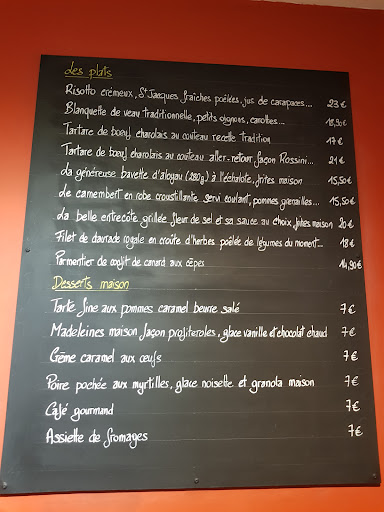 Les plats
Risotto crémeux, St Jacques fraîches poêlées, jus de carapaces... 23€
Blanquette de veau traditionnelle, petits oignons, carottes... 18,90€
Tartare de boeuf charolais au couteau recette tradition 17€
Tartare de boeuf charolais au couteau aller-retour façon Rossini... 21€
La généreuse bavette d'aloyau (280g) à l'échalote, frites maison 15,50€
Le camembert en robe croustillante servi coulant, pommes grenailles... 15,50€
La belle entrecôte grillée fleur de sel et sa sauce au choix, frites maison 20€
Filet de daurade royale en croûte d'herbes poêlée de légumes du moment... 18€
Parmentier de confit de canard aux cèpes 14,90€
Desserts maison
Tarte fine aux pommes caramel beurre salé 7€
Madeleines maison façon profiteroles, glace vanille et chocolat chaud 7€
Crème caramel aux oeufs 7€
Poire pochée aux myrtilles, glace noisette et granola maison 7€
Café gourmand 7€
Assiette de fromages 7€